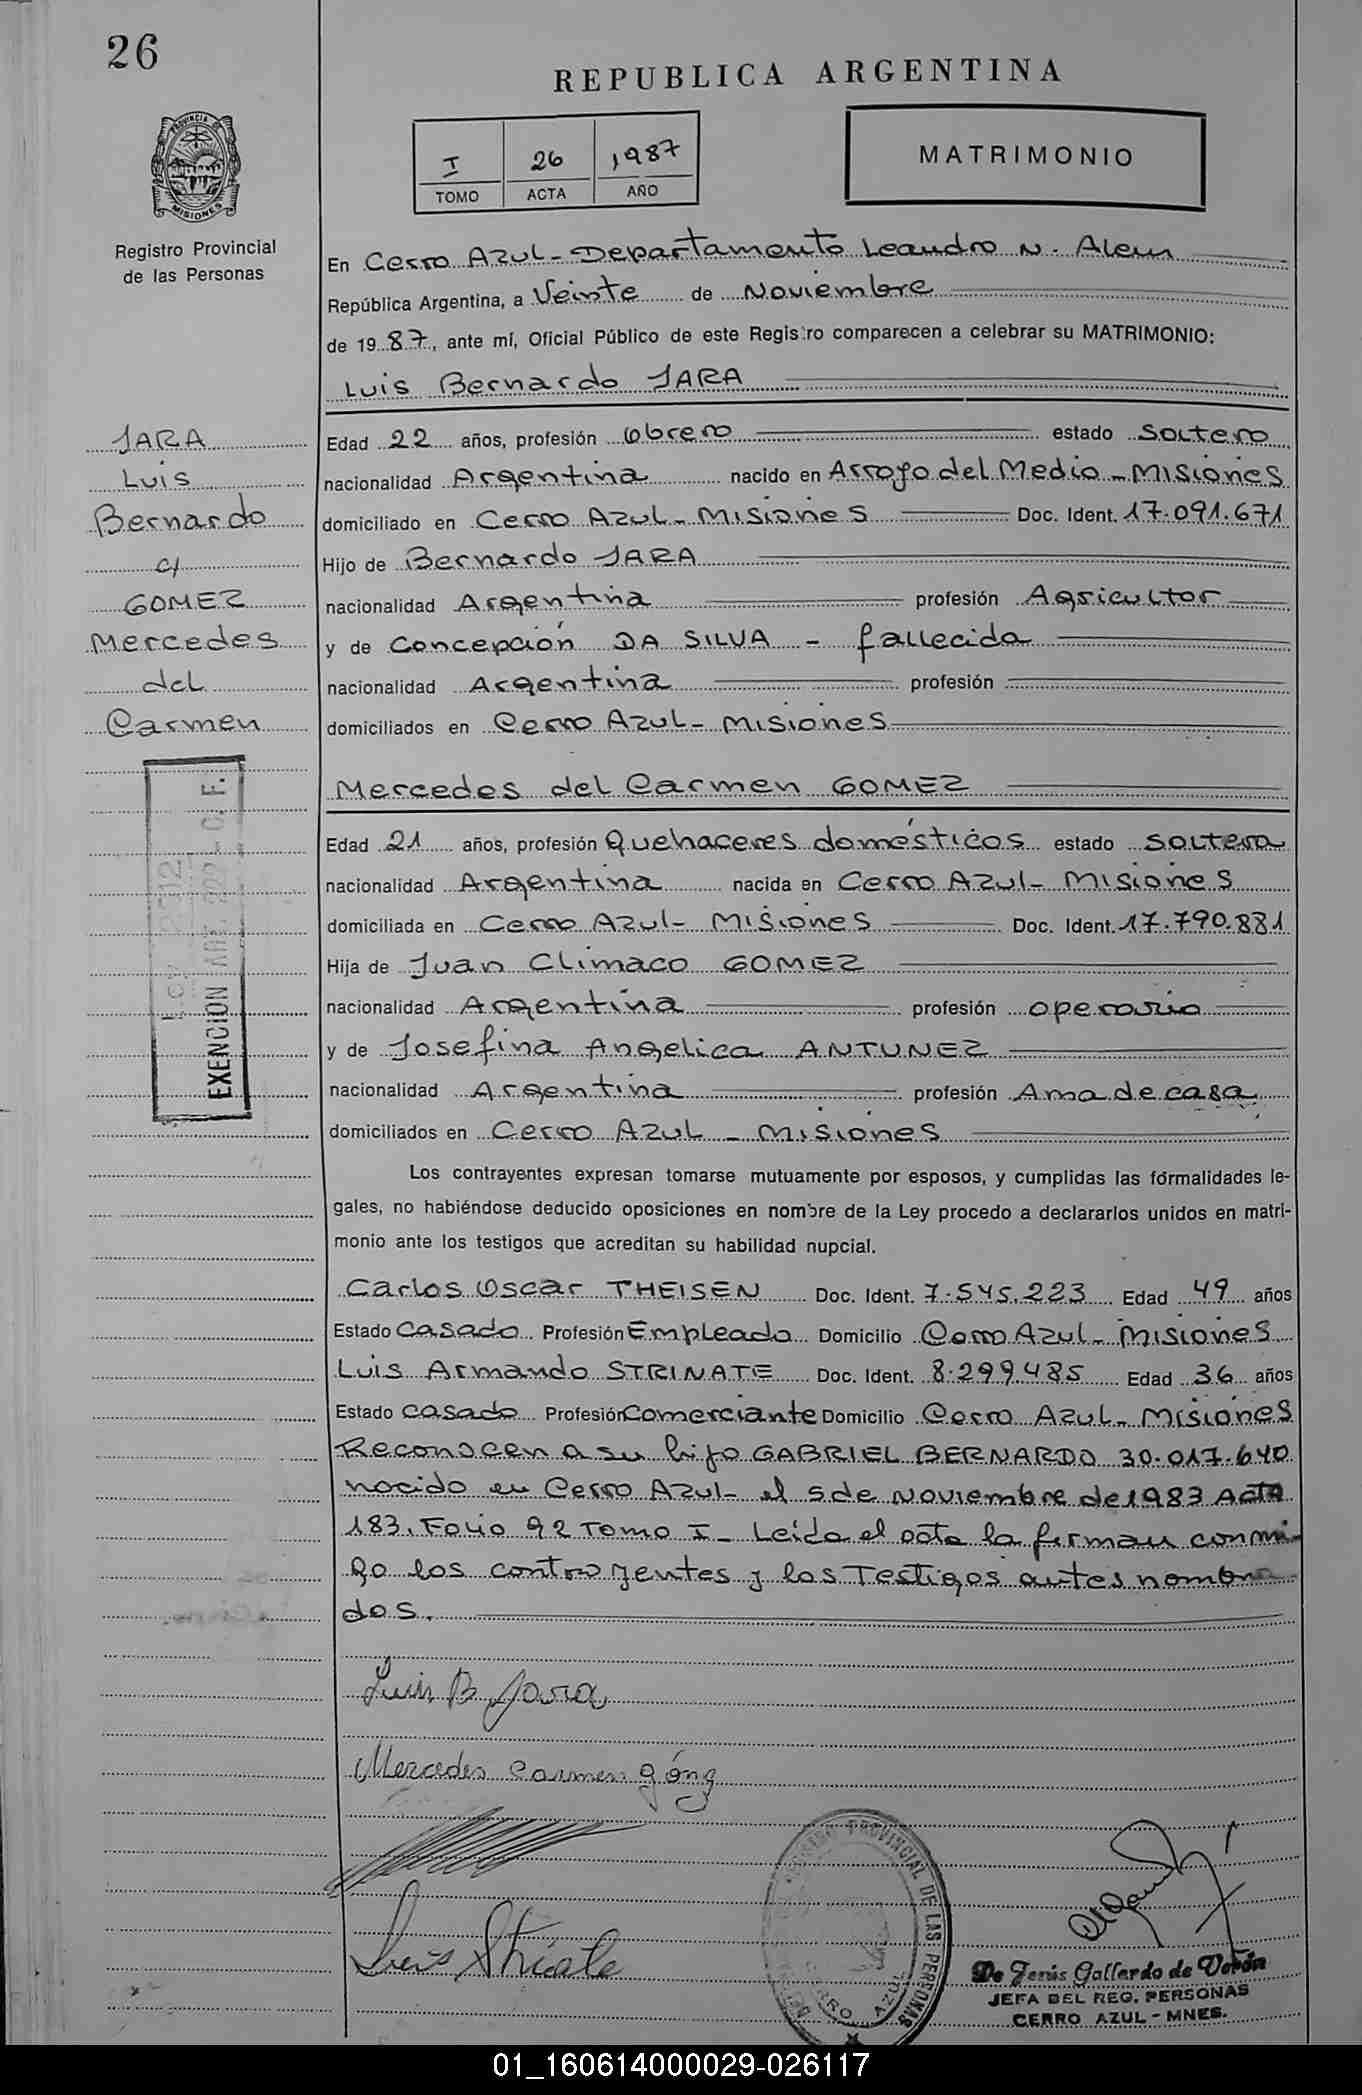 26
REPUBLICA ARGENTINA
I 26 1987
TOMO ACTA AÑO
MATRIMONIO
PROVINCIA DE MISIONES
Registro Provincial
de las Personas
En Cerro Azul - Departamento Leandro N. Alem
República Argentina, a Veinte de Noviembre
de 1987, ante mí, Oficial Público de este Registro comparecen a celebrar su MATRIMONIO:
Luis Bernardo JARA
JARA
Luis
Bernardo
c/
GOMEZ
Mercedes
del
Carmen
Edad 22 años, profesión obrero estado soltero
nacionalidad Argentina nacido en Arroyo del Medio - Misiones
domiciliado en Cerro Azul - Misiones Doc. Ident. 17.091.671
Hijo de Bernardo JARA
nacionalidad Argentina profesión Agricultor
y de Concepción DA SILVA - fallecida
nacionalidad Argentina profesión
domiciliados en Cerro Azul - Misiones
Mercedes del Carmen GOMEZ
Edad 21 años, profesión Quehaceres domésticos estado soltera
nacionalidad Argentina nacida en Cerro Azul - Misiones
domiciliada en Cerro Azul - Misiones Doc. Ident. 17.790.881
Hija de Juan Climaco GOMEZ
nacionalidad Argentina profesión operario
y de Josefina Angelica ANTUNEZ
nacionalidad Argentina profesión Ama de casa
domiciliados en Cerro Azul - Misiones
EXENCION ART.
Los contrayentes expresan tomarse mutuamente por esposos, y cumplidas las formalidades le-
gales, no habiéndose deducido oposiciones en nombre de la Ley procedo a declararlos unidos en matri-
monio ante los testigos que acreditan su habilidad nupcial.
Carlos Oscar THEISEN Doc. Ident. 7.545.223 Edad 49 años
Estado Casado Profesión Empleado Domicilio Cerro Azul - Misiones
Luis Armando STRINATE Doc. Ident. 8.299.485 Edad 36 años
Estado casado Profesión Comerciante Domicilio Cerro Azul - Misiones
Reconocen a su hijo GABRIEL BERNARDO 30.017.640
nacido en Cerro Azul - el 5 de Noviembre de 1983 Acta
183. Folio 92 Tomo I - Leida el acta la firman conmi-
go los contrayentes y los Testigos antes nombra-
dos.
Luis B Jara
Mercedes Carmen Gómez
REGISTRO PROVINCIAL DE LAS PERSONAS
CERRO AZUL
De Jesús Gallardo de Verón
JEFA DEL REG. PERSONAS
CERRO AZUL - MNES.
01_160614000029-026117